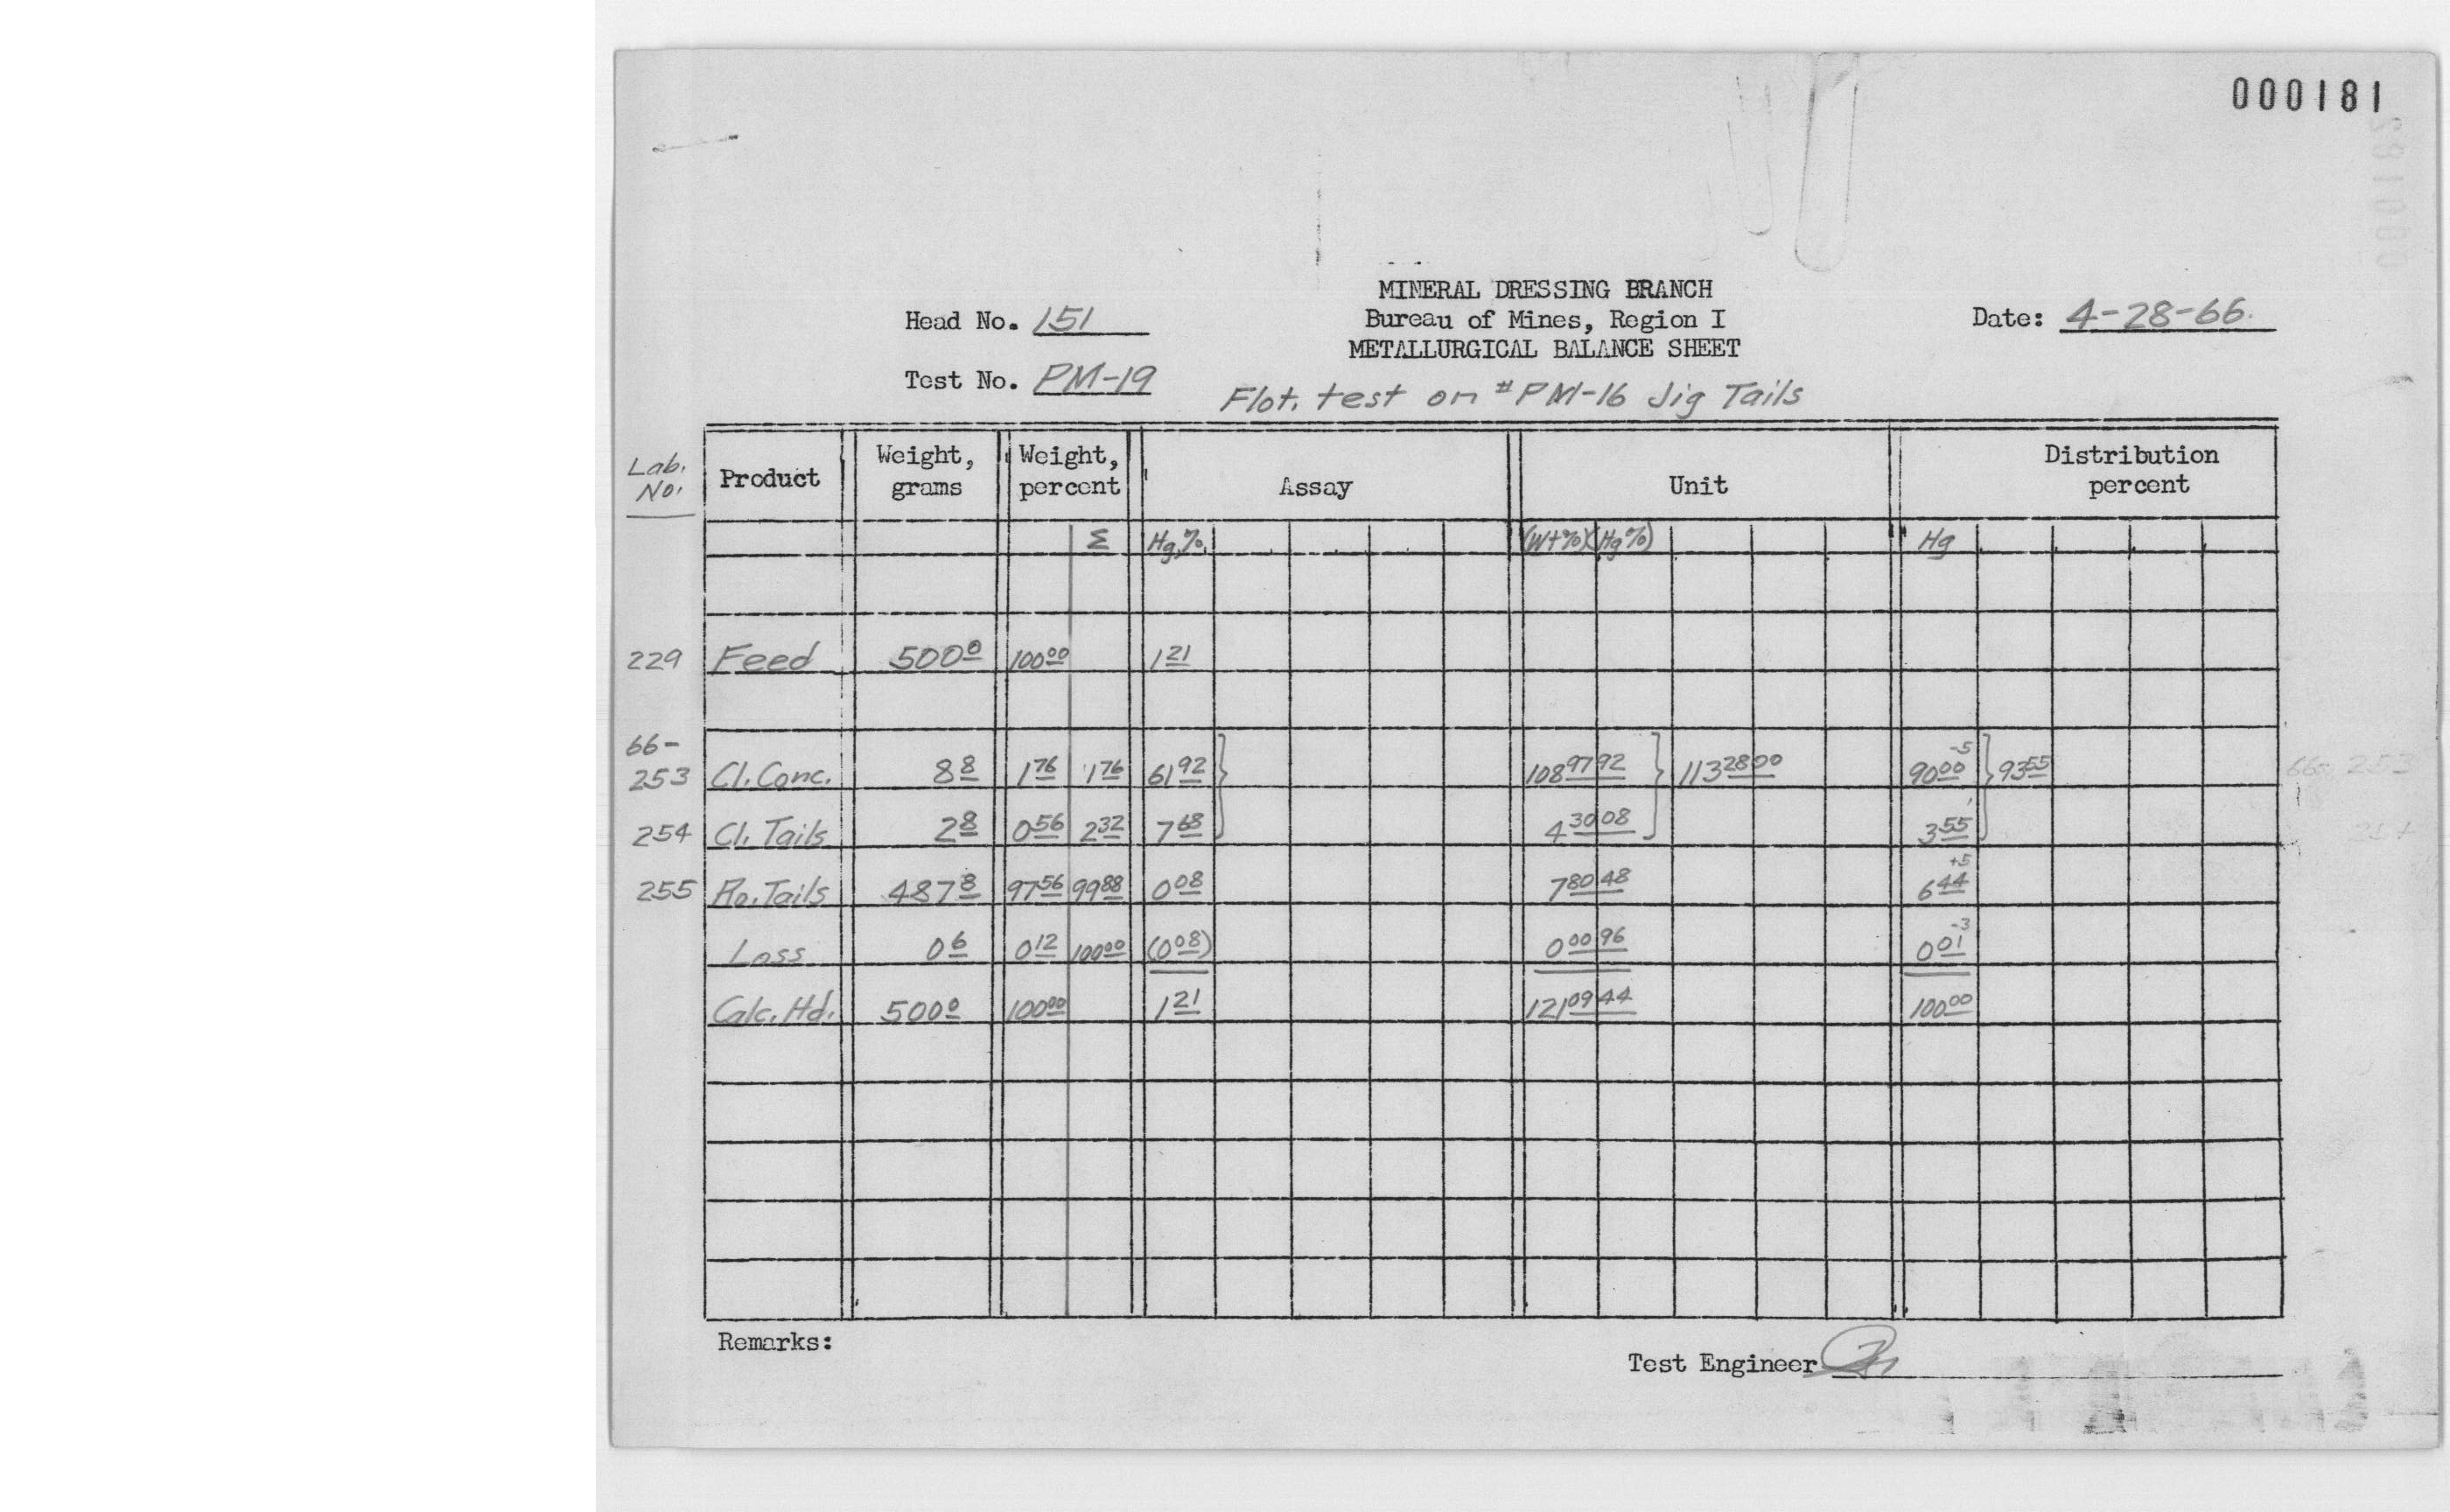 000181
MINERAL DRESSING BRANCH
Head No. 151 Bureau of Mines, Region I Date: 4-28-66.
METALLURGICAL BALANCE SHEET
Test No. PM-19 Flot. test on #PM-16 Jig Tails
Lab. No. Product Weight, grams Weight, percent Assay Unit Distribution percent
Σ Hg,% (Wt%)(Hg%) Hg
229 Feed 500⁰ 100⁰⁰ 1²¹
66-
253 Cl. Conc. 8⁸ 1⁷⁶ 1⁷⁶ 61⁹² 108⁹⁷⁹² 113²⁸⁰⁰ 90⁰⁰ ⁻⁵ 93⁵⁵
254 Cl. Tails 2⁸ 0⁵⁶ 2³² 7⁶⁸ 4³⁰⁰⁸ 3⁵⁵
255 Ro. Tails 487⁸ 97⁵⁶ 99⁸⁸ 0⁰⁸ 7⁸⁰⁴⁸ 6⁴⁴ ⁺⁵
Loss 0⁶ 0¹² 100⁰⁰ (0⁰⁸) 0⁰⁰⁹⁶ 0⁰¹ ⁻³
Calc. Hd. 500⁰ 100⁰⁰ 1²¹ 121⁰⁹⁴⁴ 100⁰⁰
Remarks:
Test Engineer